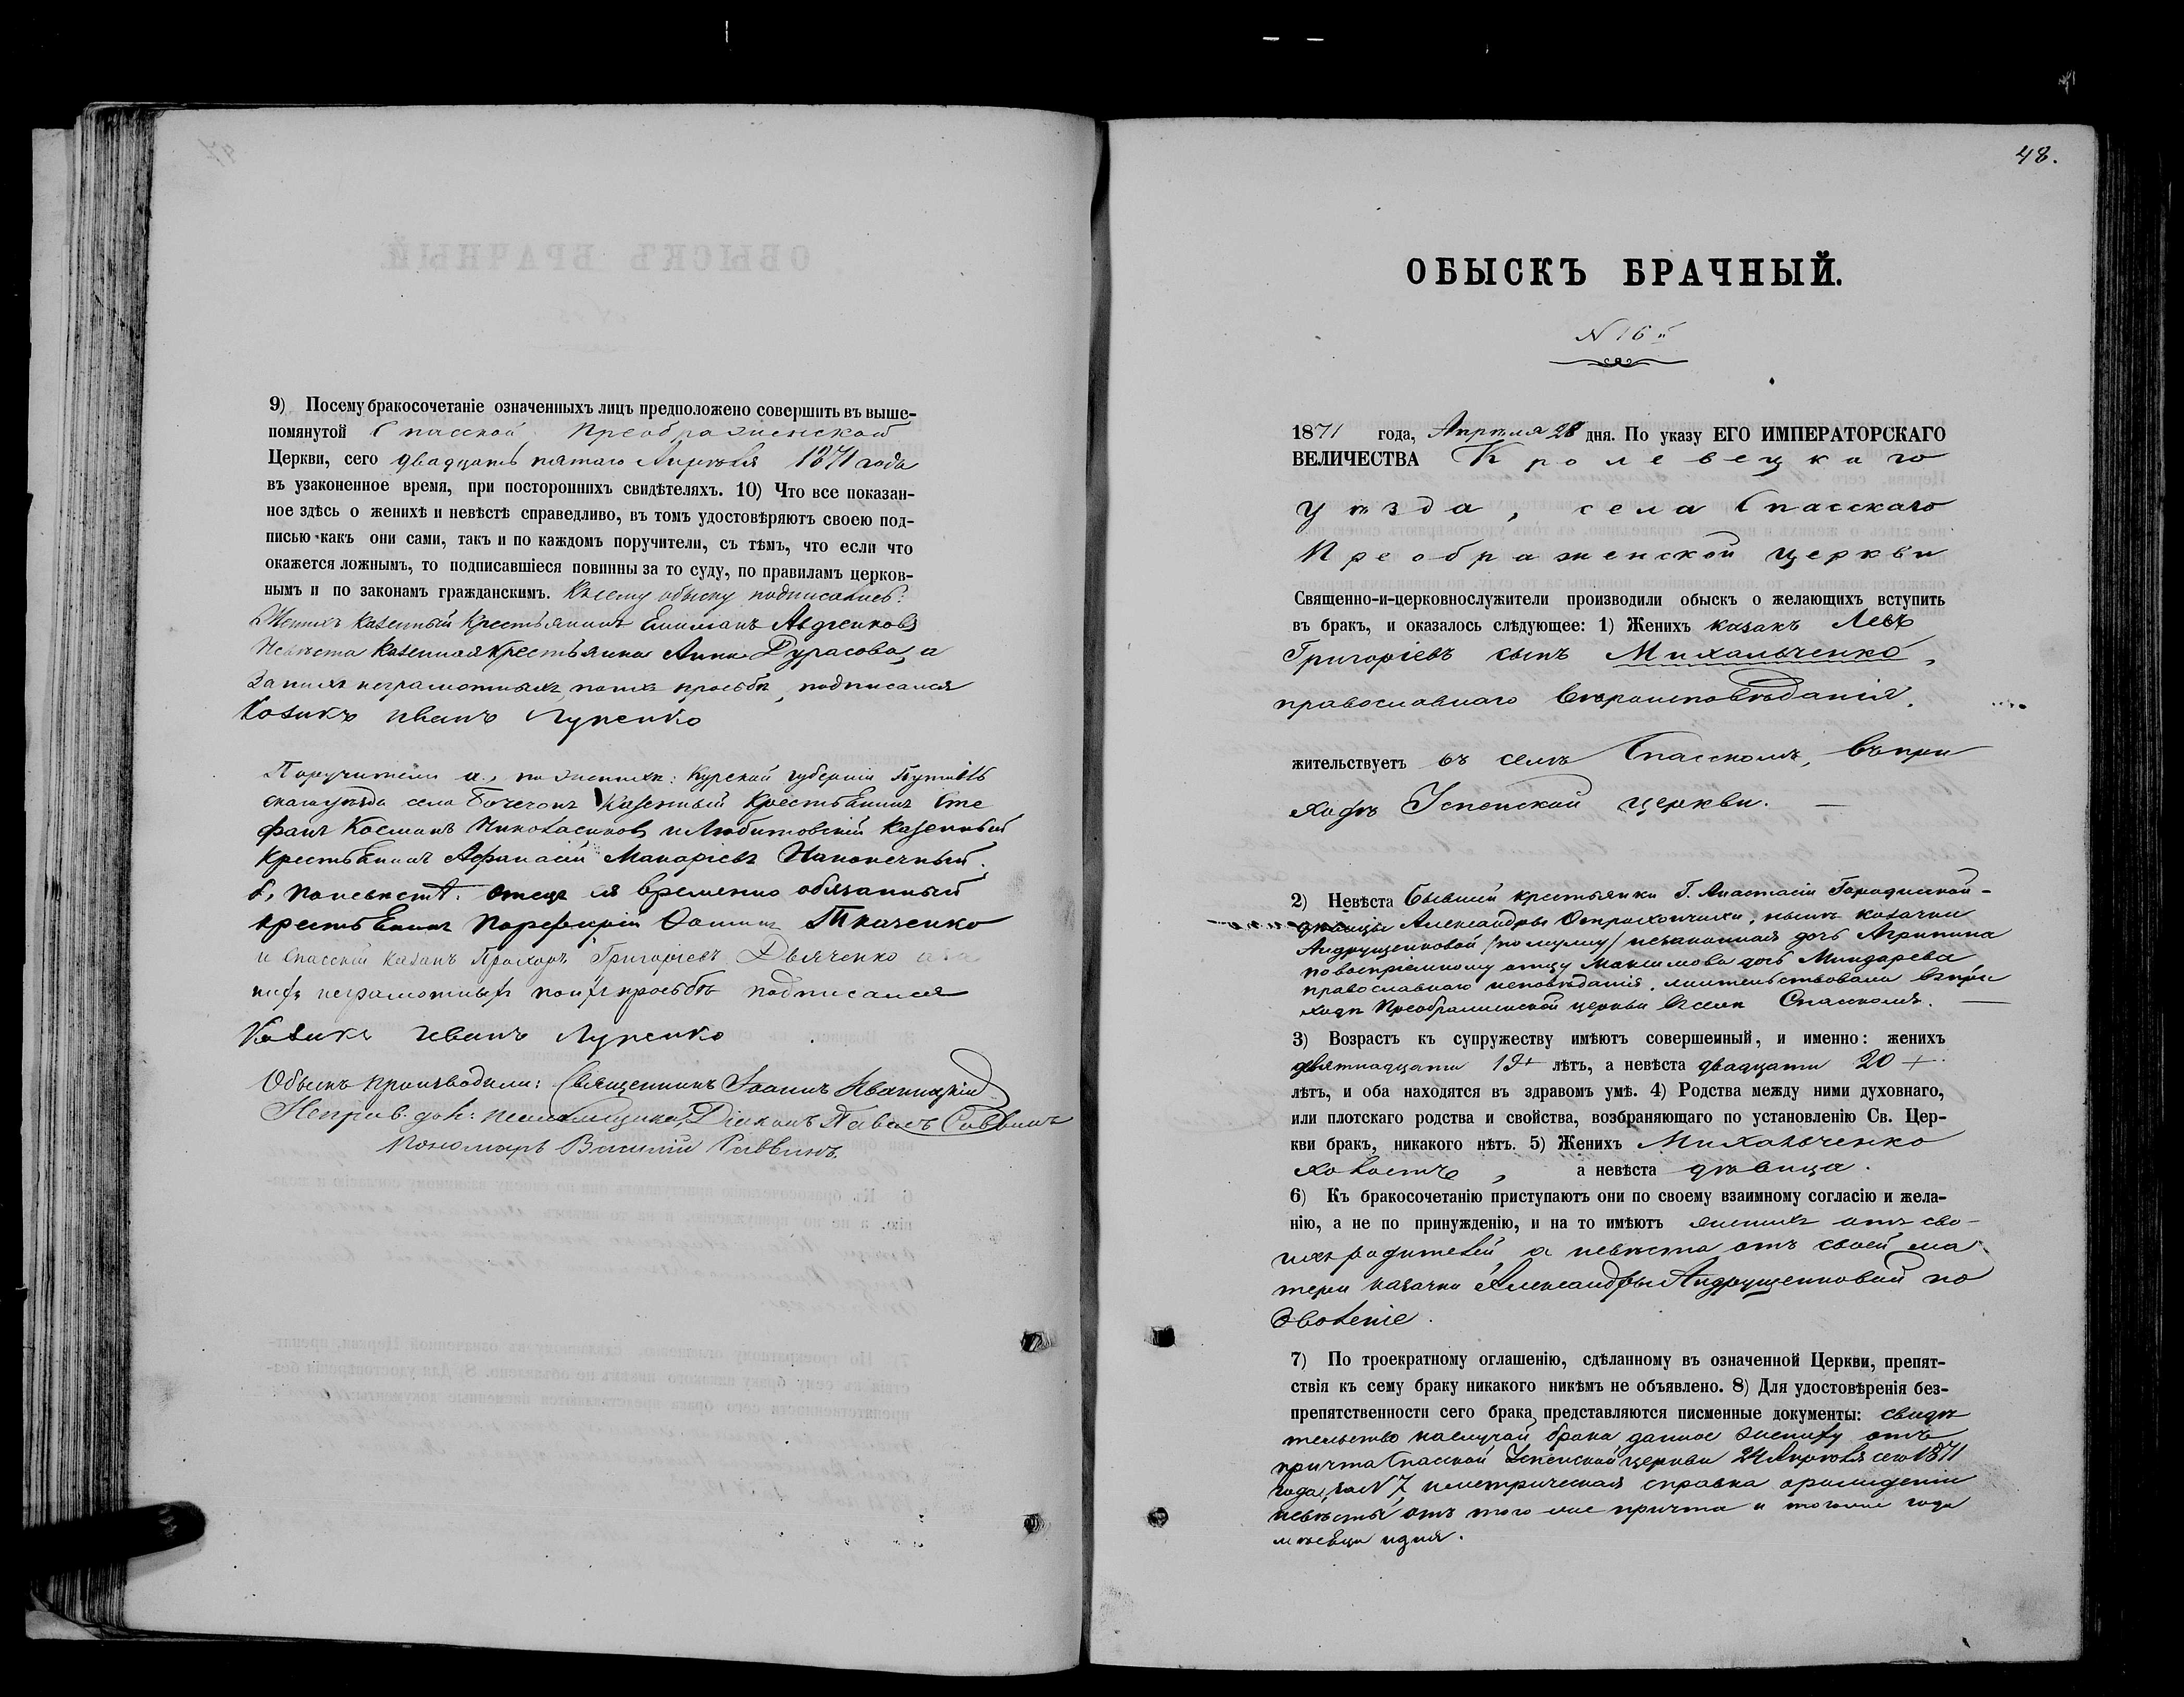 9) Посему бракосочетаніе означенныхъ лицъ предположено совершить въ выше-
помянутой Спасской Преображенской
Церкви, сего двадцать пятаго Апрѣля 1871 года
въ узаконенное время, при постороннихъ свидѣтеляхъ. 10) Что все показан-
ное здѣсь о женихѣ и невѣстѣ справедливо, въ томъ удостовѣряютъ своею под-
писью какъ они сами, такъ и по каждомъ поручители, съ тѣмъ, что если что
окажется ложнымъ, то подписавшіеся повинны за то суду, по правиламъ церков-
нымъ и по законамъ гражданскимъ. Къ сему обыску подписались:
Женихъ казенный крестьянинъ Авдѣенковъ
Невѣста казенная крестьянка Анна Дурасова, а
за нихъ неграмотныхъ, по ихъ просьбѣ, подписался
Козакъ Иванъ Лупенко
Поручители а., по женихѣ: Курской губерніи Путивль
скаго уѣзда села казенный крестьянинъ Сте
фанъ Косманъ и Любитовскій казенный
крестьянинъ Афанасій Макаріевъ Наконечный.
б, по невѣстѣ: отецъ ея временно обязанный
крестьянинъ Порфирій Ткаченко
и Спасскій казакъ Прохоръ Григоріевъ Дьяченко а за
нихъ неграмотныхъ по ихъ просьбѣ подписался
Козакъ Иванъ Лупенко
Обыскъ производили: Священникъ Іоаннъ Кваницкій
Діаконъ Павелъ Саввинъ
Пономарь Василій Саввинъ.
48.
ОБЫСКЪ БРАЧНЫЙ.
N 16й
1871 года, Апрѣля 28 дня. По указу ЕГО ИМПЕРАТОРСКАГО
ВЕЛИЧЕСТВА Кролевецкаго
уѣзда, села Спасскаго
Преображенской церкви
Священно-и-церковнослужители производили обыскъ о желающихъ вступить
въ бракъ, и оказалось слѣдующее: 1) Женихъ казакъ Левъ
Григоріевъ сынъ Михальченко,
православнаго вѣроисповѣданія.
жительствуетъ въ селѣ Спасскомъ, въ при
ходѣ Успенской церкви.
2) Невѣста бывшей крестьянки Г. Анастасіи Городиской-
дѣвицы Александры, нынѣ козачки
Андрущенковой /по мужу/ незаконная дочь Агрипина
по воспріемному отцу Максимова дочь Миндарева
православнаго исповѣданія, жительствовала въ при
ходѣ Преображенской церкви въ селѣ Спасскомъ.
3) Возрастъ къ супружеству имѣютъ совершенный, и именно: женихъ
девятнадцати 19 лѣтъ, а невѣста двадцати 20
лѣтъ, и оба находятся въ здравомъ умѣ. 4) Родства между ними духовнаго,
или плотскаго родства и свойства, возбраняющаго по установленію Св. Цер-
кви бракъ, никакого нѣтъ. 5) Женихъ Михальченко
холостъ, а невѣста дѣвица.
6) Къ бракосочетанію приступаютъ они по своему взаимному согласію и жела-
нію, а не по принужденію, и на то имѣютъ женихъ отъ сво-
ихъ родителей, а невѣста отъ своей ма
тери казачки Александры Андрущенковой по
зволеніе.
7) По троекратному оглашенію, сдѣланному въ означенной Церкви, препят-
ствія къ сему браку никакого никѣмъ не объявлено. 8) Для удостовѣренія без-
препятственности сего брака представляются писменные документы: свидѣ
тельство на случай брака данное жениху отъ
причта Спасской Успенской церкви 24 Апрѣля сего 1871
года, за N 7, метрическая справка о рожденіи
невѣсты отъ того же причта и того же года
мѣсяца и дня.